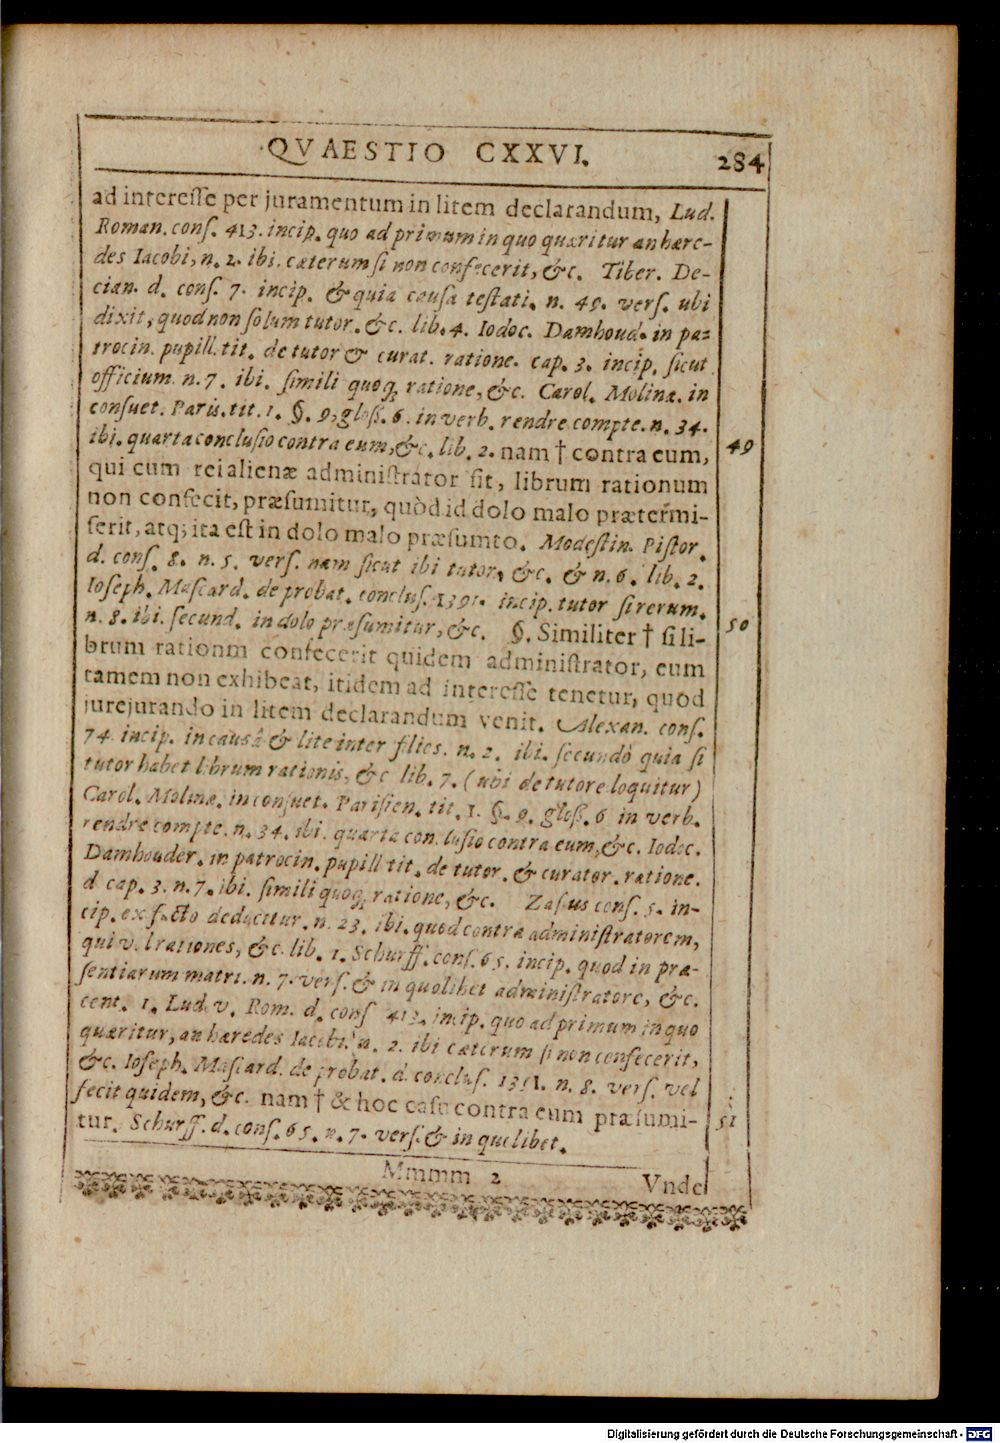 QVAESTIO CXXVI. 284
ad interesse per juramentum in litem declarandum, Lud.
Roman. conſ. 413. incip. quo ad primum in quo quæritur an hære-
des Iacobi, n. 2. ibi. cæterum ſi non confecerit, &c. Tiber. De-
cian. d. conſ. 7. incip. & quia cauſa teſtati. n. 49. verſ. ubi
dixit, quod non ſolum tutor. &c. lib. 4. Iodoc. Damhoud. in pa-
trocin. pupill. tit. de tutor & curat. ratione. cap. 3. incip. ſicut
officium. n. 7. ibi. ſimili quoq; ratione, &c. Carol. Molinæ. in
conſuet. Paris. tit. 1. §. 9, gloſſ. 6. in verb. rendre compte. n. 34.
ibi. quarta concluſio contra eum, &c. lib. 2. nam † contra eum, 49
qui cum rei alienæ adminiſtrator ſit, librum rationum
non confecit, præſumitur, quòd id dolo malo prætermi-
ſerit, atq; ita eſt in dolo malo præſumto. Modeſtin. Piſtor.
d. conſ. 8. n. 5. verſ. nam ſicut ibi tutor, &c. & n. 6. lib. 2.
Ioſeph. Maſcard. de probat. concluſ. 1391. incip. tutor ſi rerum.
n. 8. ibi. ſecund. in dolo præſumitur, &c. §. Similiter † ſi li- 50
brum rationm confecerit quidem adminiſtrator, eum
tamen non exhibeat, itidem ad intereſſe tenetur, quod
jurejurando in litem declarandum venit. Alexan. conſ.
74. incip. in causâ & lite inter filios. n. 2. ibi. ſecundò quia ſi
tutor habet librum rationis, &c lib. 7. (ubi de tutore loquitur)
Carol. Molinæ. in conſuet. Pariſien. tit. 1. §. 9. gloſſ. 6 in verb.
rendre compte. n. 34. ibi. quarta concluſio contra eum, &c. Iodoc.
Damhouder. in patrocin. pupill tit. de tutor. & curator. ratione.
d cap. 3. n. 7. ibi. ſimili quoq; ratione, &c. Zaſius conſ. 5. in-
cip. ex facto deducitur. n. 23. ibi. quod contra adminiſtratorem,
qui v. l rationes, &c. lib. 1. Schurff. conſ. 65. incip. quod in præ-
ſentiarum matri. n. 7. verſ. & in quolibet adminiſtratore, &c.
cent. 1. Ludov. Rom. d. conſ 413. incip. quo ad primum in quo
quæritur, an hæredes Iacobi. n. 2. ibi cæterum ſi non confecerit,
&c. Ioſeph. Maſcard. de probat. d. concluſ. 1391. n. 8. verſ. vel
fecit quidem, &c. nam † & hoc caſu contra eum præſumi- 51
tur. Schurff. d. conſ. 65. n. 7. verſ. & in quolibet.
Mmmm 2 Vnde
Digitalisierung gefördert durch die Deutsche Forschungsgemeinschaft - DFG